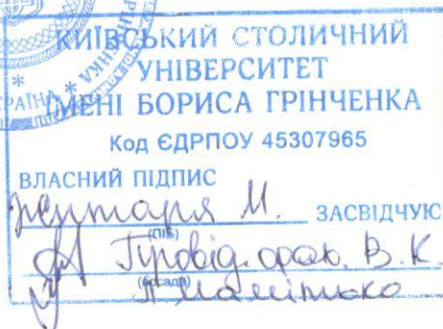 КИЇВСЬКИЙ СТОЛИЧНИЙ
УНІВЕРСИТЕТ
ІМЕНІ БОРИСА ГРІНЧЕНКА
Код ЄДРПОУ 45307965
ВЛАСНИЙ ПІДПИС
М. ЗАСВІДЧУЮ
(ПІБ)
Провід. В. К.
(посада)